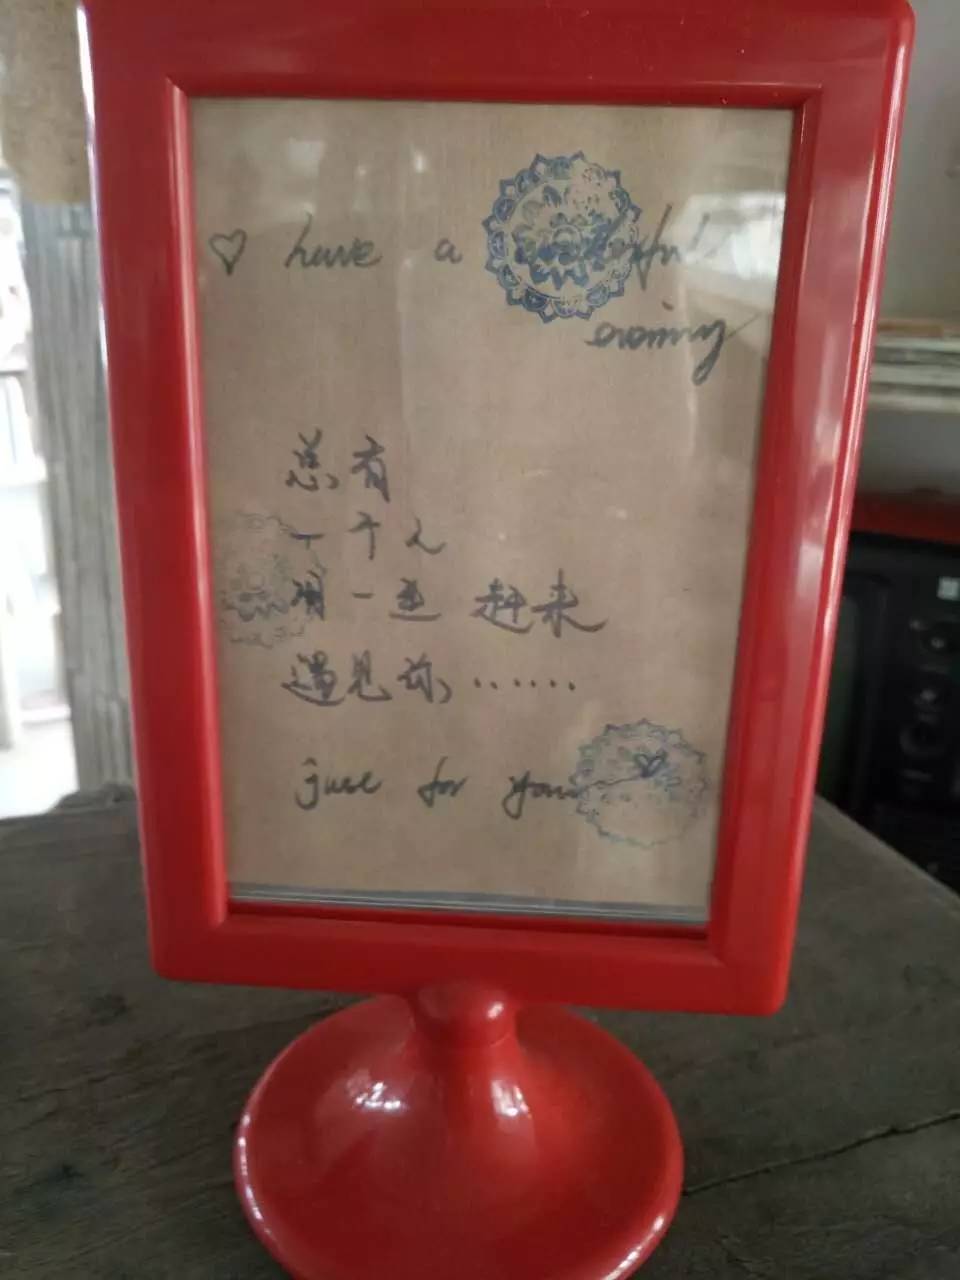 ♡ have a wonderful
evening
总有
一个人
周一至 赶来
遇见你……
just for you